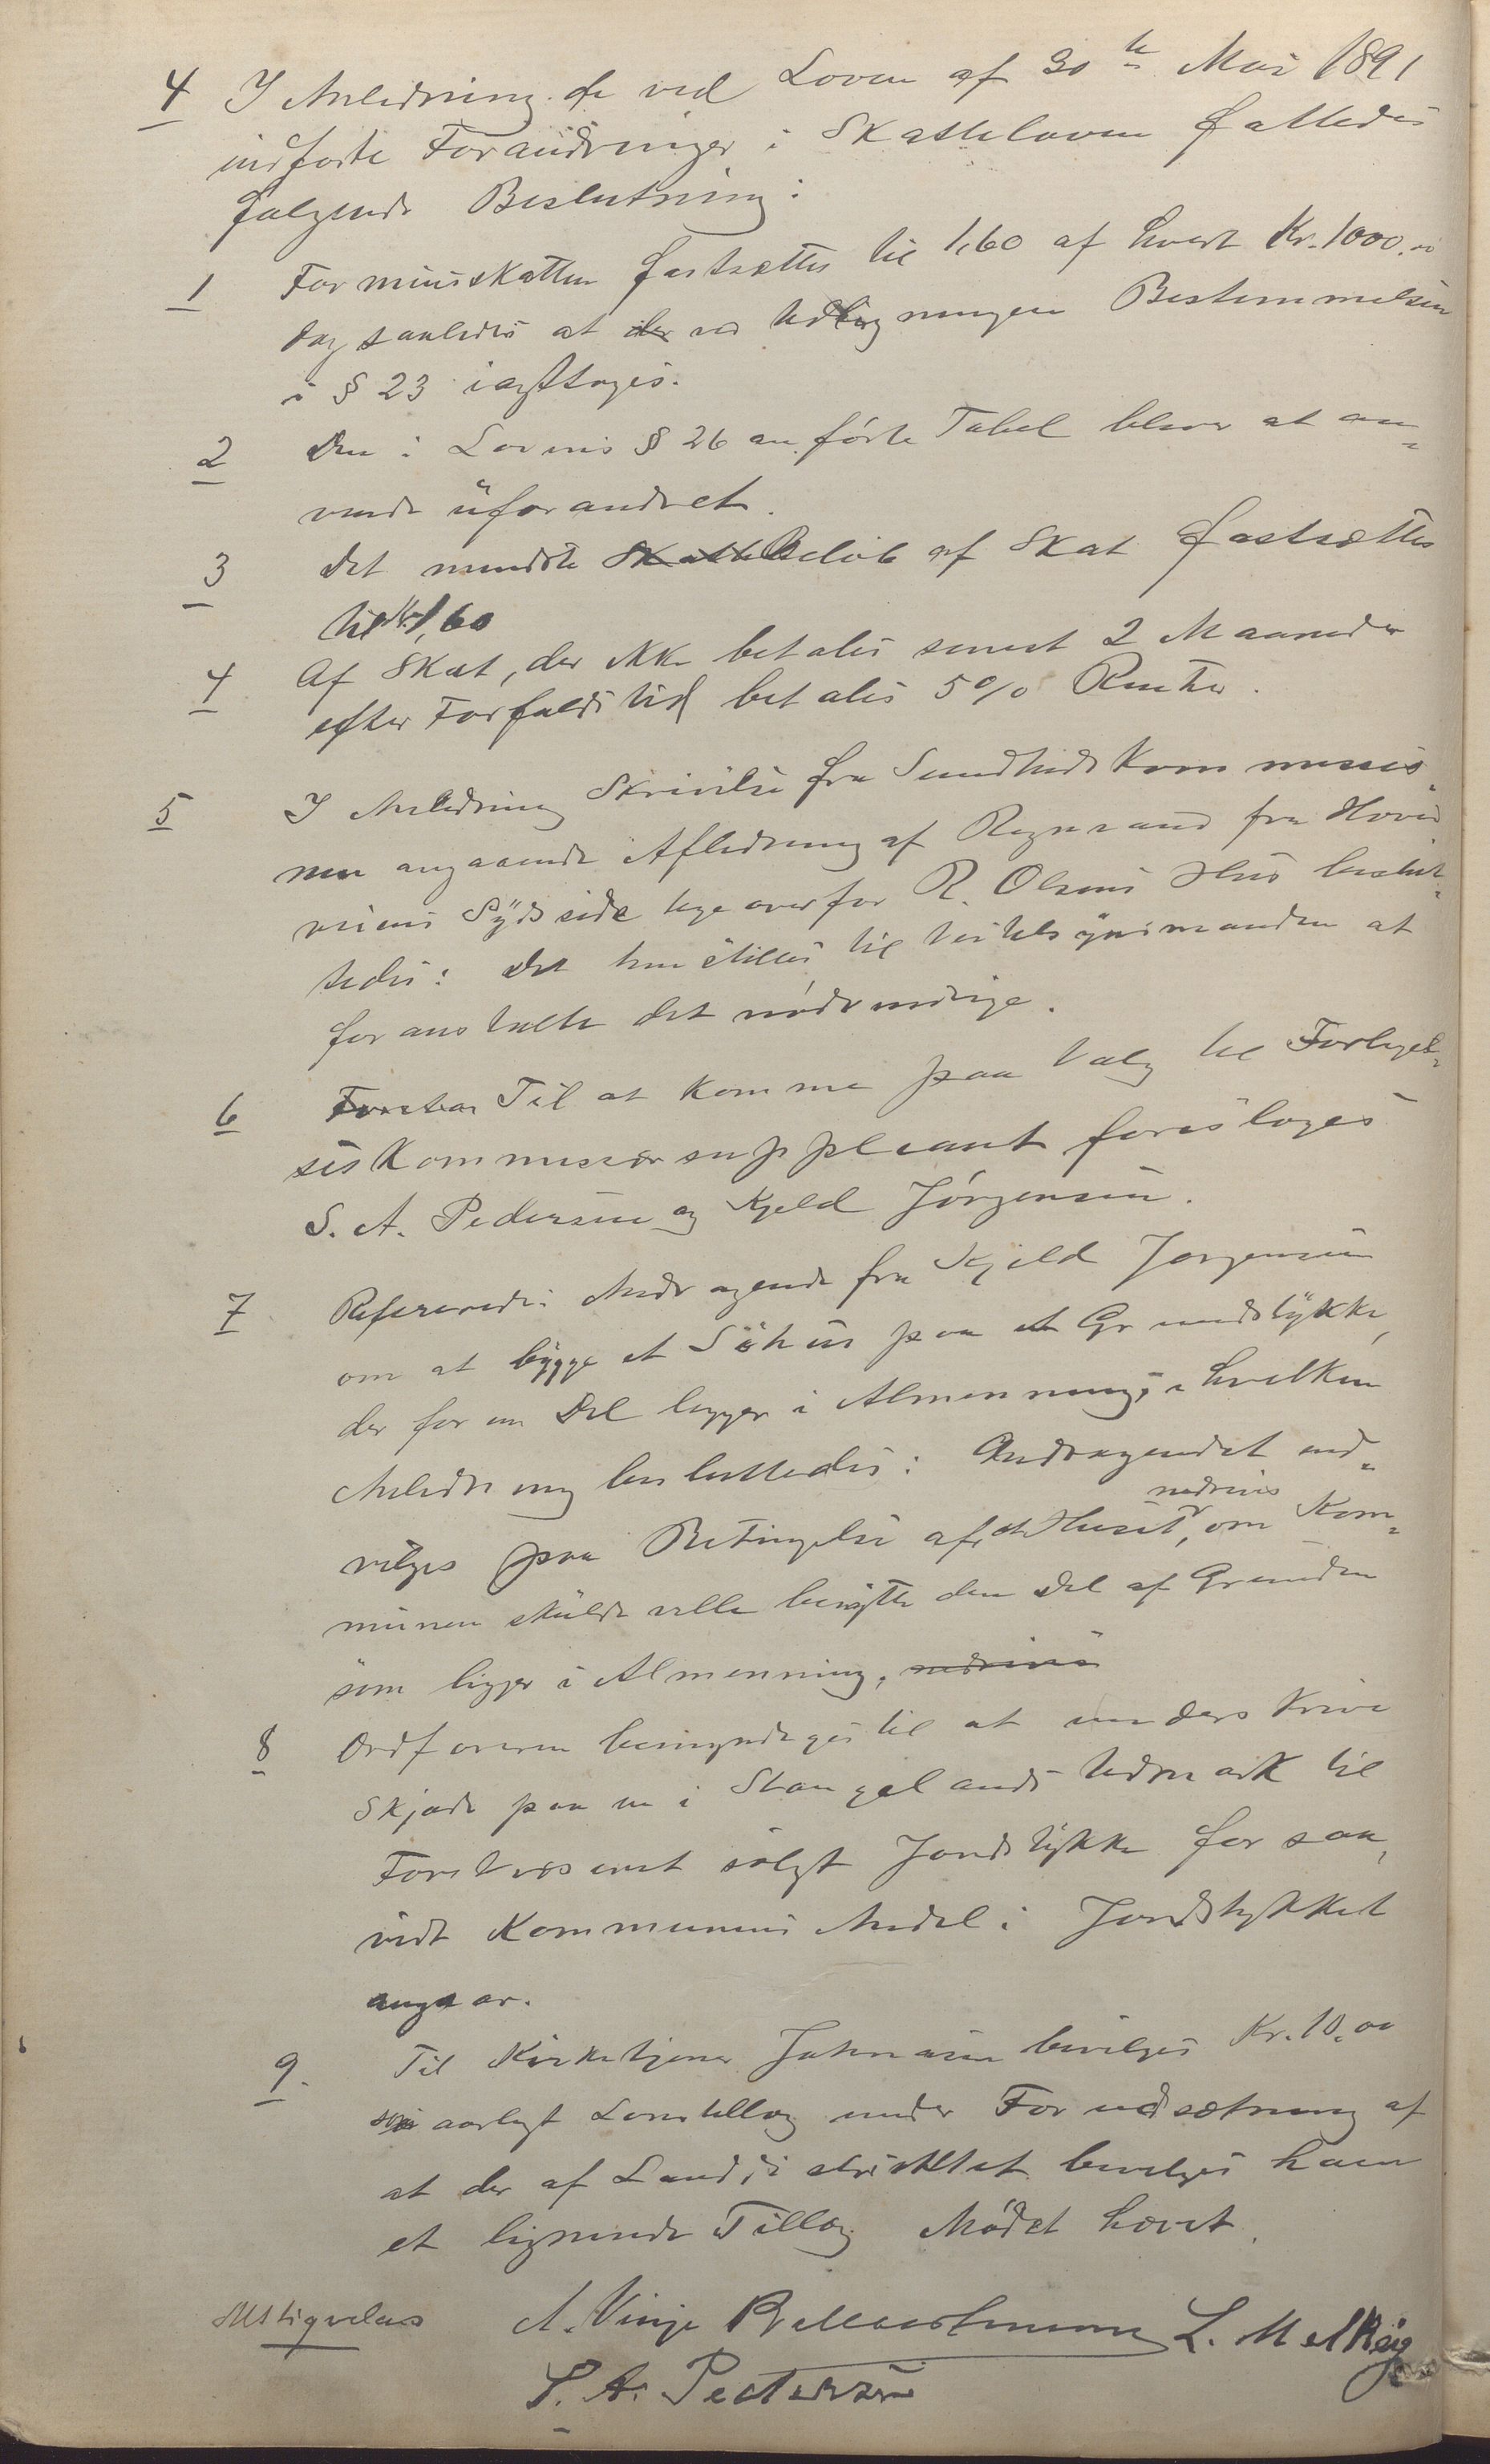 4 I Anledning de ved Loven af 30te Mai 1891
indførte Forandringer i Skatteloven fattedes
følgende Beslutning:
1 Formuesskatten fastsættes til 1,60 af hvert Kr. 1000.00
dog saaledes at der ved Udligningen Bestemmelsen
i § 23 iagttages.
2 Den i Lovens § 26 anførte Tabel bliver at an-
vende uforandret.
3 Det mindste Skatte Beløb af Skat fastsættes
til Kr 1,60
4 Af Skat, der ikke betales senest 2 Maaneder
efter Forfaldstid betales 5% Renter.
5 I Anledning Skrivelse fra Sundhedskommissio-
nen angaaende Afledning af Regnvand fra Hoved-
veiens Sydside ligeoverfor R. Olsens Hus beslut-
tedes: Det henstilles til Veitilsynsmanden at
foranstalte det nødvendige.
6 Til at komme paa Valg til Forligel-
seskommissærsuppleant foresloges
S. A. Pedersen og Kjeld Jørgensen.
7 Refereredes Andragende fra Kjeld Jørgensen
om at bygge et Söhus paa et Grundstykke,
der for en Del ligger i Almenning, i hvilken
Anledning besluttedes: Andragendet ind-
vilges paa Betingelse af, at Huset nedrives, om Kom-
munen skulde ville benytte den Del af Grunden
som ligger i Almenning, nedrives
8 Ordføreren bemyndiges til at underskrive
Skjøde paa en i Stangelands Udmark til
Forstvæsenet solgt Jordstykke for saa-
vidt Kommunens Andel i Jordstykket
angaar.
9. Til Kirketjener Johnsen bevilges Kr. 10.00
som aarligt Lønstillæg under Forudsætning af
at der af Landdistriktet bevilges ham
et lignende Tillæg Mødet hævet.
A. Vinje L. Melkeig
S. A. Pedersen